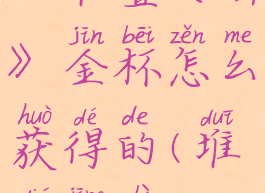 jīn bēi zěn me
》金杯怎么
huò dé de duī
获得的(堆